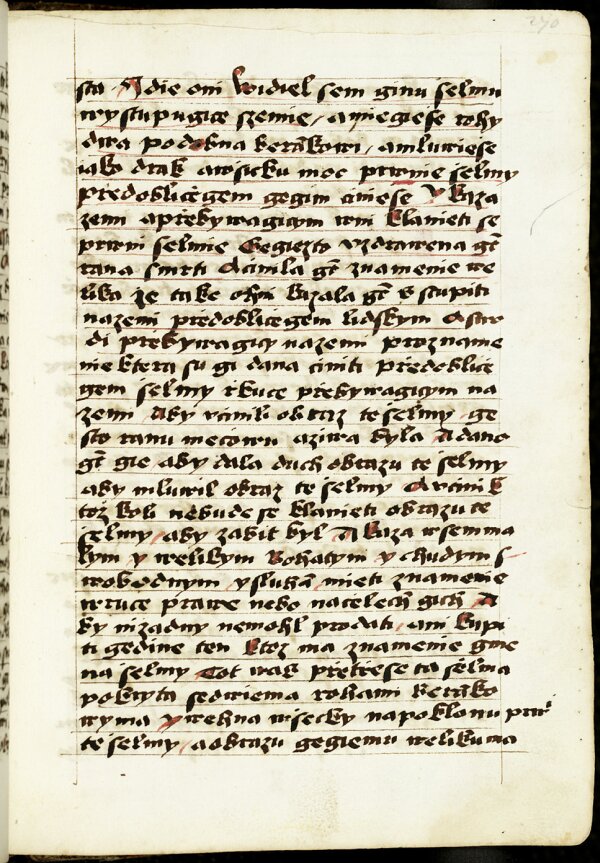 sta A die oni Widiel sem ginu selmu
wystupugice szemie / a miegiese rohy
dwa podobna beránkowi / amluwiese
iako drak awsicku moc prwnie selmy
předobliegegem gegim cinese y kaza
zemi aprebywagicym wni klanieti se
prwni selmie Gegiezto vzdrawena gt
rana smrti Acinila gt znamenie we
lika že take ohni kazala gt s stupiti
nazemi předoblicegem lidskym Astro
di prebywagicy nazemi prozname
nie ktera su gi dana ciniti předoblice
gem selmy rkuce přebywagicym na
zemi Aby vcinili obraz te selmy ge
sto ranu mecowu aziwa byla A dano
gt gie aby dala duch obrazu te selmy
aby mluwil obraz te selmy A vcini k
toz koli nebude se klanieti obrazu te
selmy / aby zabit byl A kaza wsem ma
lym y welikym Bohatym y chudym s
wobodnym y sluhá mieti znamenie
wruce prawe nebo nacelech gich A
by nizadny nemohl prodati ani kupi
ti gedine ten ktoz ma znamenie gme
na selmy Tot wak pretrese ta selma
pokryta sedmiema rohami beráko
wyma y wehna wsecky napoklonu prw
te selmy / aobrazu gegiemu welikuma